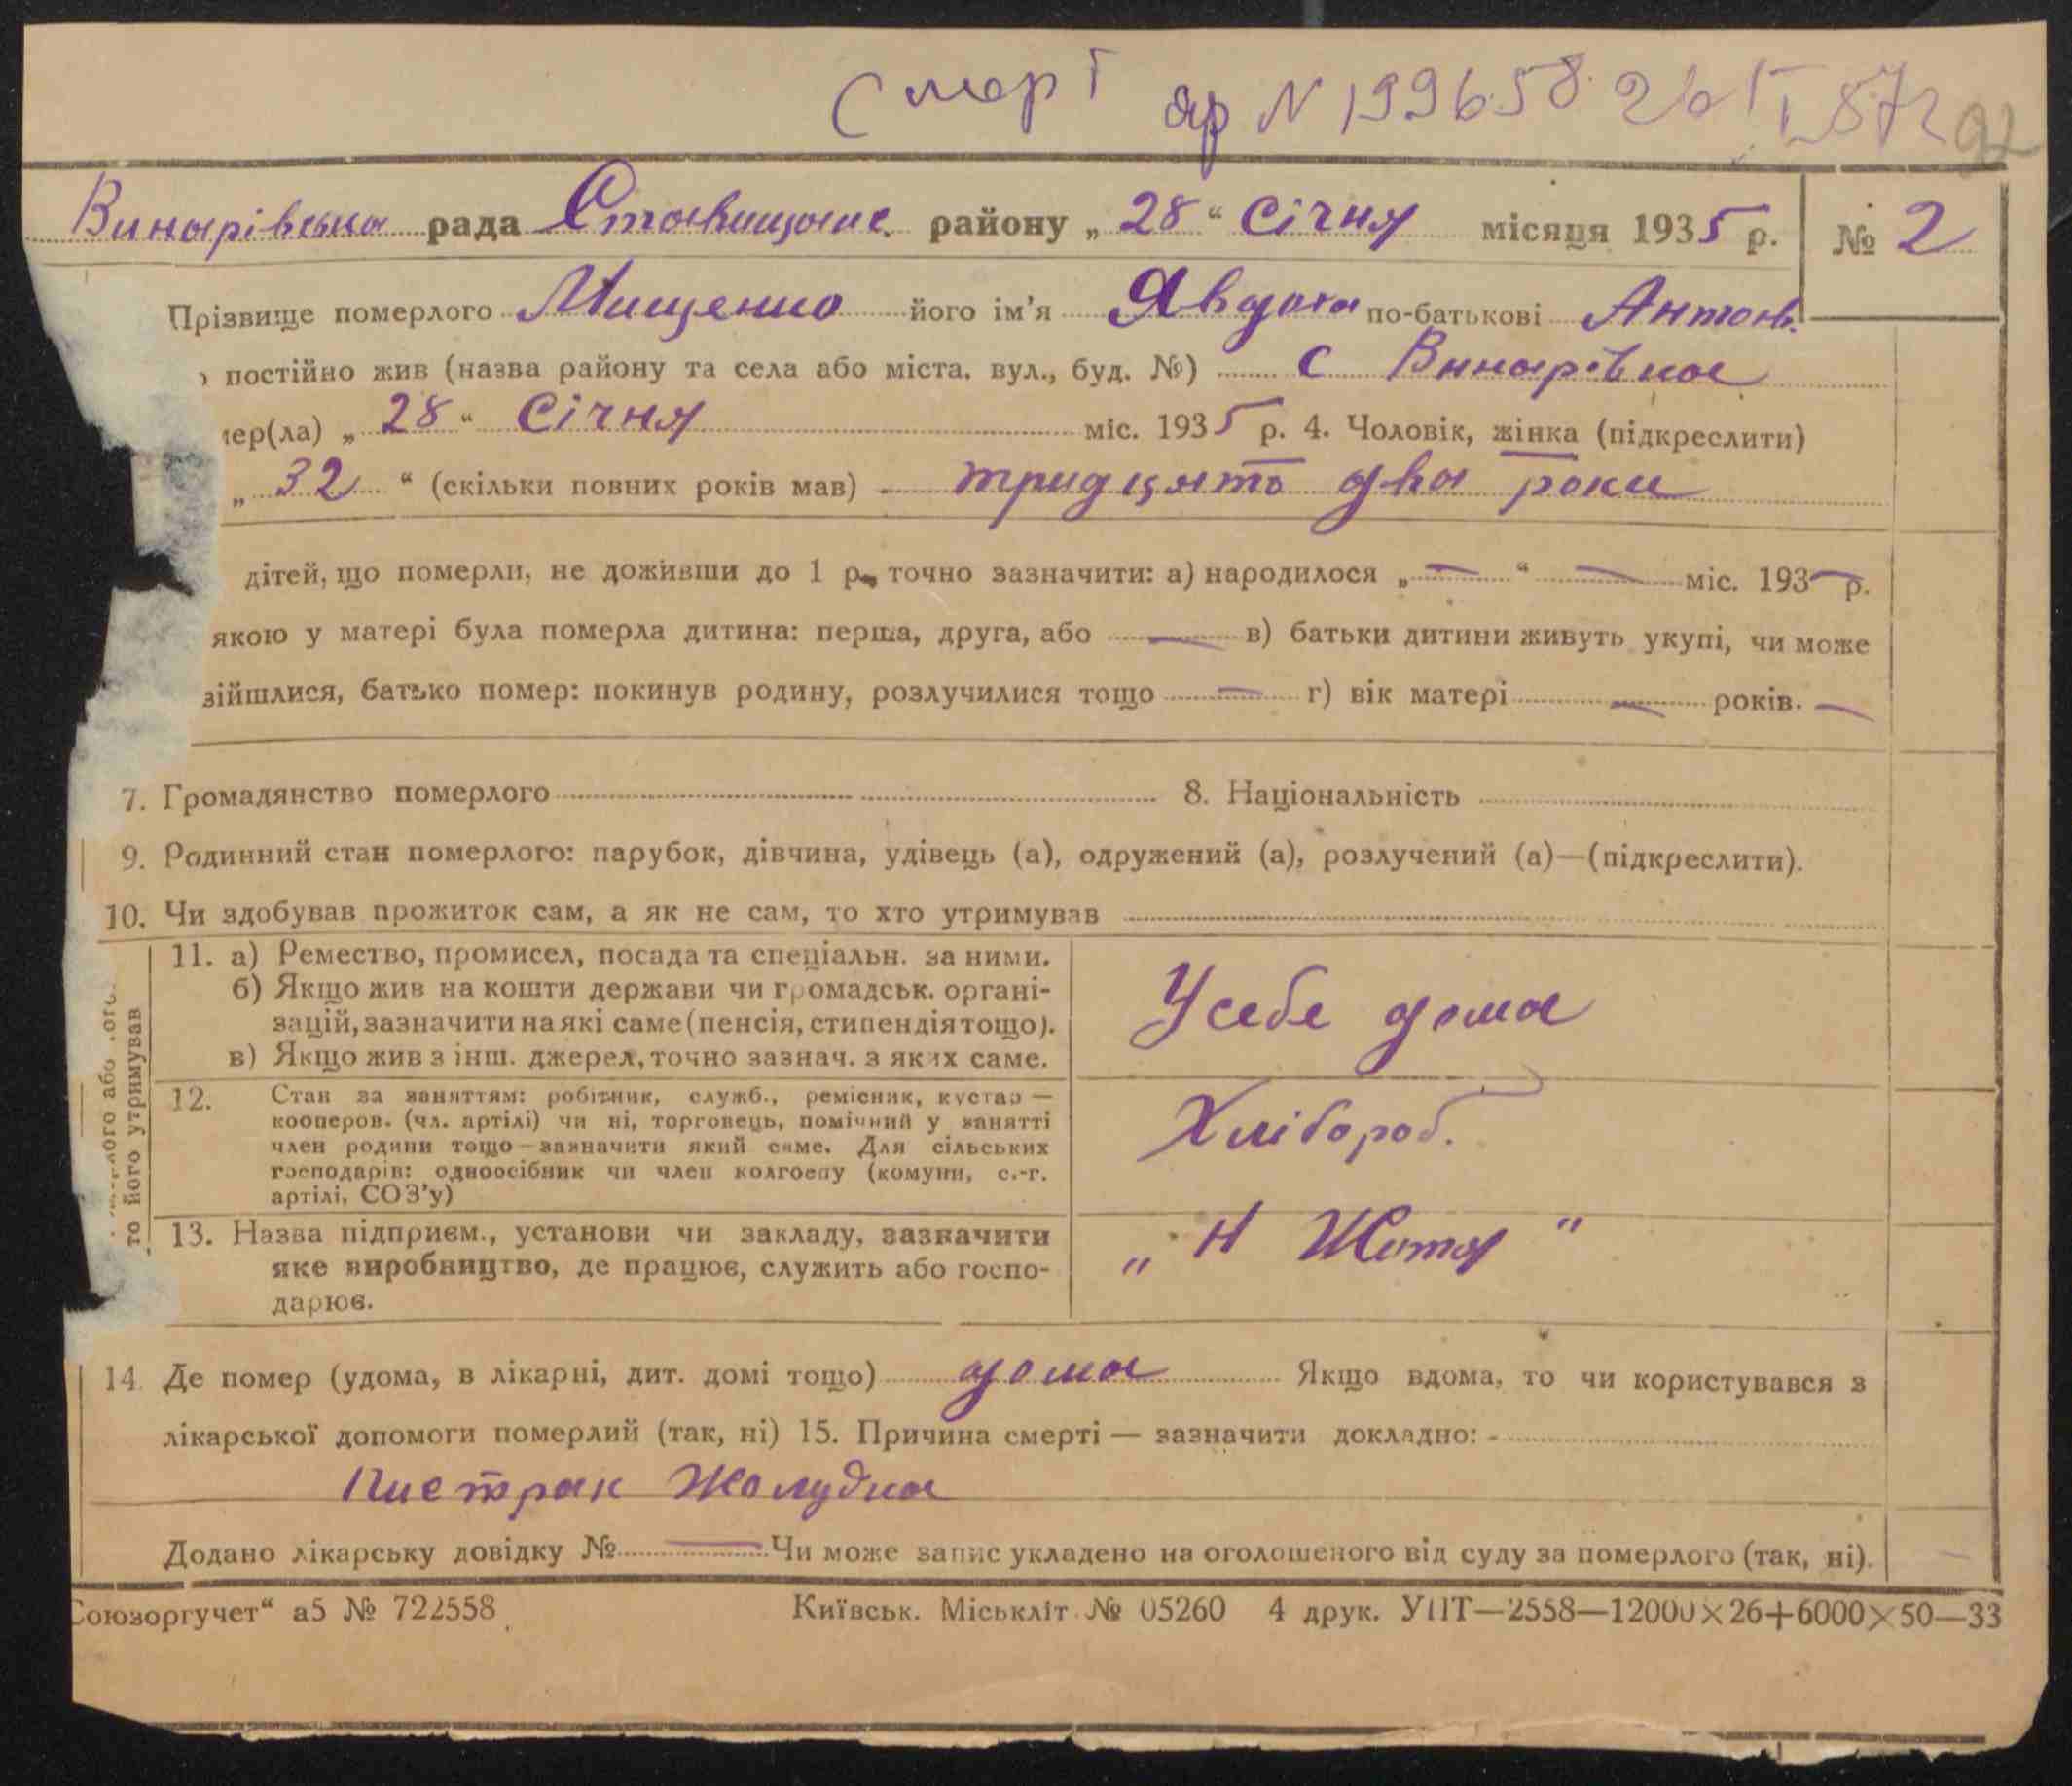 Смерт др N 199658 26/I 87 г 92
Винарівська рада Ставищанс. району „28“ Січня місяця 1935 р. № 2
Прізвище померлого Мищенко його ім’я Явдоха по-батькові Антонів.
постійно жив (назва району та села або міста, вул., буд. №) с Винарівка
мер(ла) „28“ Січня міс. 1935 р. 4. Чоловік, жінка (підкреслити)
„32“ (скільки повних років мав) тридцять два роки
дітей, що померли, не доживши до 1 р., точно зазначити: а) народилося „—“ — міс. 193— р.
якою у матері була померла дитина: перша, друга, або — в) батьки дитини живуть укупі, чи може
зійшлися, батько помер: покинув родину, розлучилися тощо — г) вік матері — років. —
7. Громадянство померлого 8. Національність
9. Родинний стан померлого: парубок, дівчина, удівець (а), одружений (а), розлучений (а)—(підкреслити).
10. Чи здобував прожиток сам, а як не сам, то хто утримував
ого або
то його утримував
11. а) Ремество, промисел, посада та спеціальн. за ними.
б) Якщо жив на кошти держави чи громадськ. органі-
зацій, зазначити на які саме (пенсія, стипендія тощо).
в) Якщо жив з інш. джерел, точно зазнач. з яких саме.
У себе дома
12. Стан за заняттям: робітник, служб., ремісник, кустар —
кооперов. (чл. артілі) чи ні, торговець, помічний у занятті
член родини тощо — зазначити який саме. Для сільських
господарів: одноосібник чи член колгоспу (комуни, с.-г.
артілі, СОЗ’у)
Хлібороб.
13. Назва підприєм., установи чи закладу, зазначити
яке виробництво, де працює, служить або госпо-
дарює.
„Н Життя“
14. Де помер (удома, в лікарні, дит. домі тощо) дома Якщо вдома, то чи користувався з
лікарської допомоги померлий (так, ні) 15. Причина смерті — зазначити докладно:
Жолудка
Додано лікарську довідку № — Чи може запис укладено на оголошеного від суду за померлого (так, ні).
Союзоргучет“ а5 № 722558 Київськ. Міськліт № 05260 4 друк. УПТ—2558—12000×26+6000×50—33